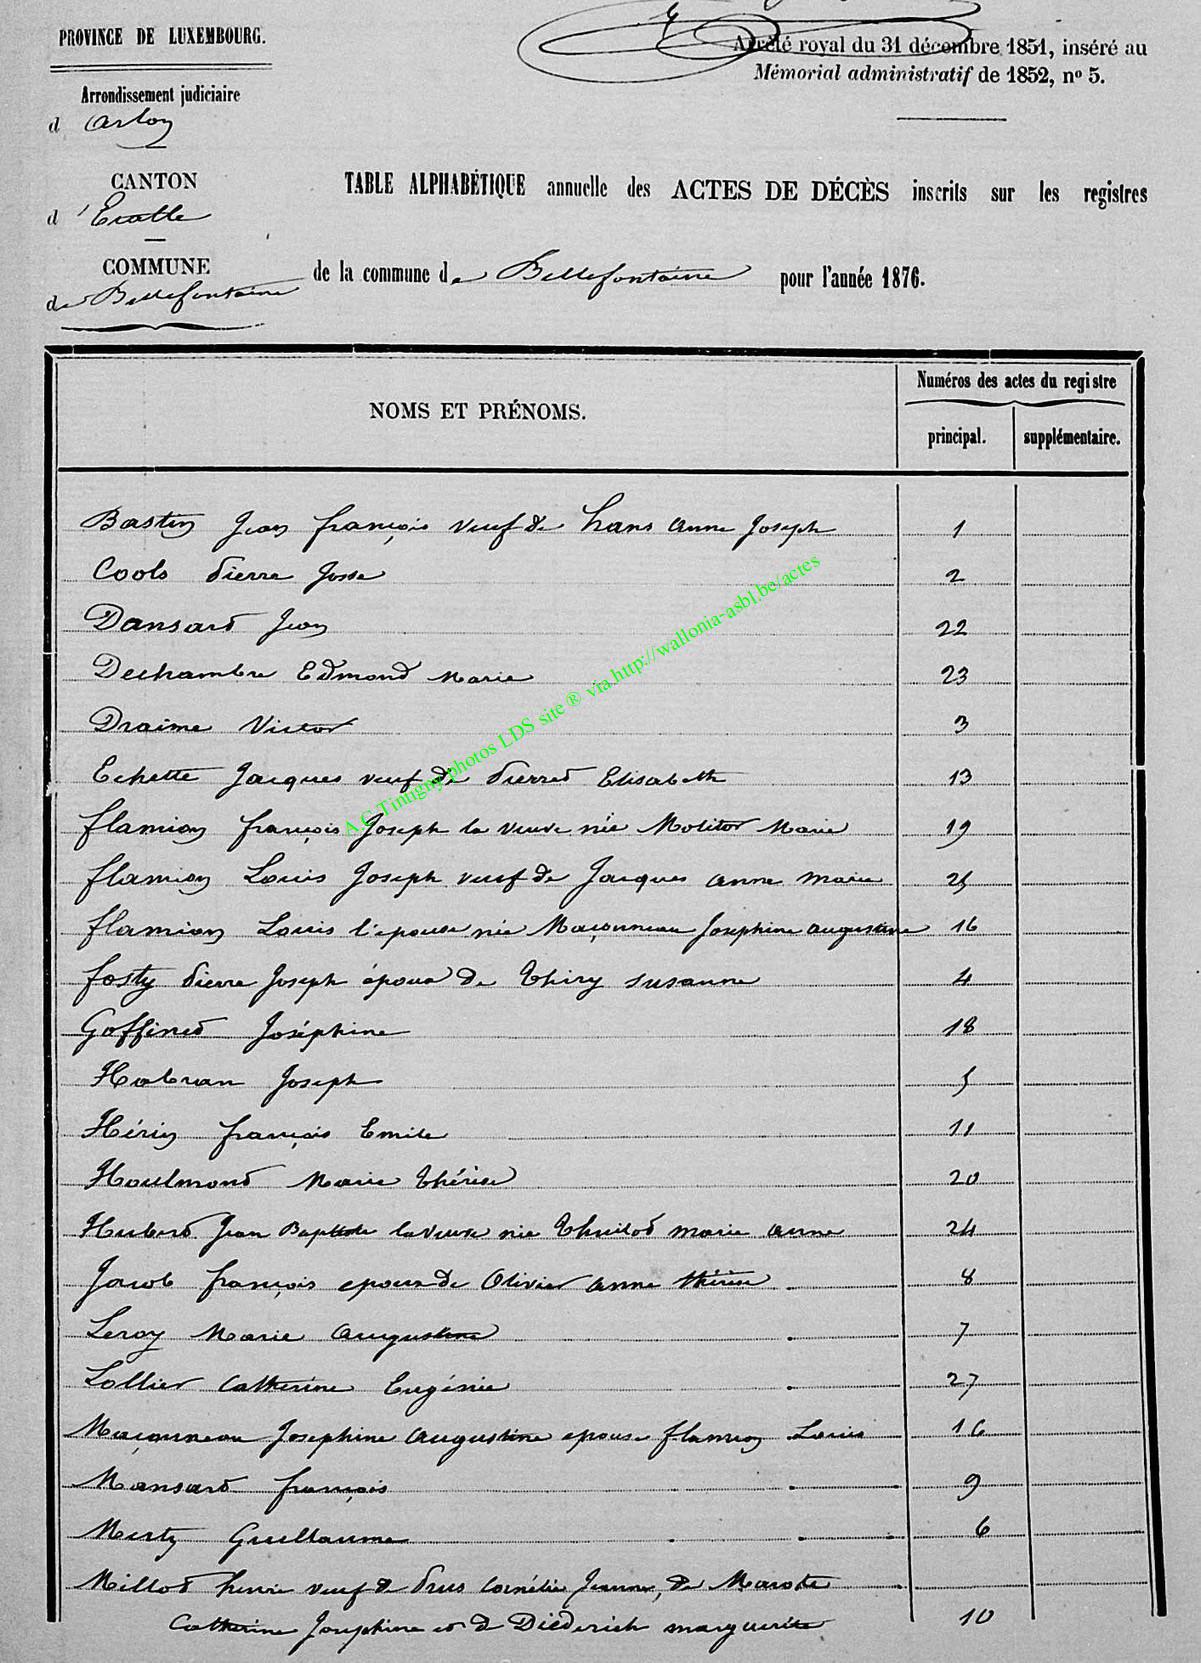 PROVINCE DE LUXEMBOURG.
Arrêté royal du 31 décembre 1851, inséré au
Mémorial administratif de 1852, nº 5.
Arrondissement judiciaire
d'Arlon
CANTON
d'Etalle
COMMUNE
de Bellefontaine
TABLE ALPHABÉTIQUE annuelle des ACTES DE DÉCÈS inscrits sur les registres
de la commune de Bellefontaine pour l'année 1876.
NOMS ET PRÉNOMS.
Numéros des actes du registre
principal. supplémentaire.
Bastin Jean françois veuf de hans anne Joseph 1
Cools Pierre Josse 2
Dansard Jean 22
Dechambre Edmond Marie 23
Draime Victor 3
Echette Jacques veuf de Pierred Elisabeth 13
flamion françois Joseph la veuve née Molitor Marie 19
flamion Louis Joseph veuf de Jacques anne marie 25
flamion Louis l'epouse née Maçonneau Josephine augustine 16
fosty Pierre Joseph époux de Thiry susanne 4
Goffined Joséphine 18
Habran Joseph 5
Hérin françois Emile 11
Houlmond Marie Thérèse 20
Huberd Jean Baptiste la veuve née Thuilod marie anne 24
Jacob françois epoux de Olivier anne thérèse 8
Leroy Marie Augustine 7
Lollier Catherine Eugénie 27
Maçonneau Josephine Augustine epouse flamion Louis 16
Mansard françois 9
Mertz Guillaume 6
Millod henri veuf de Prus Cornélie Jeanne, de Marote
Catherine Josephine et de Diederich marguerite 10
A.C.Tintigny photos LDS site ® via http://wallonia-asbl.be/actes